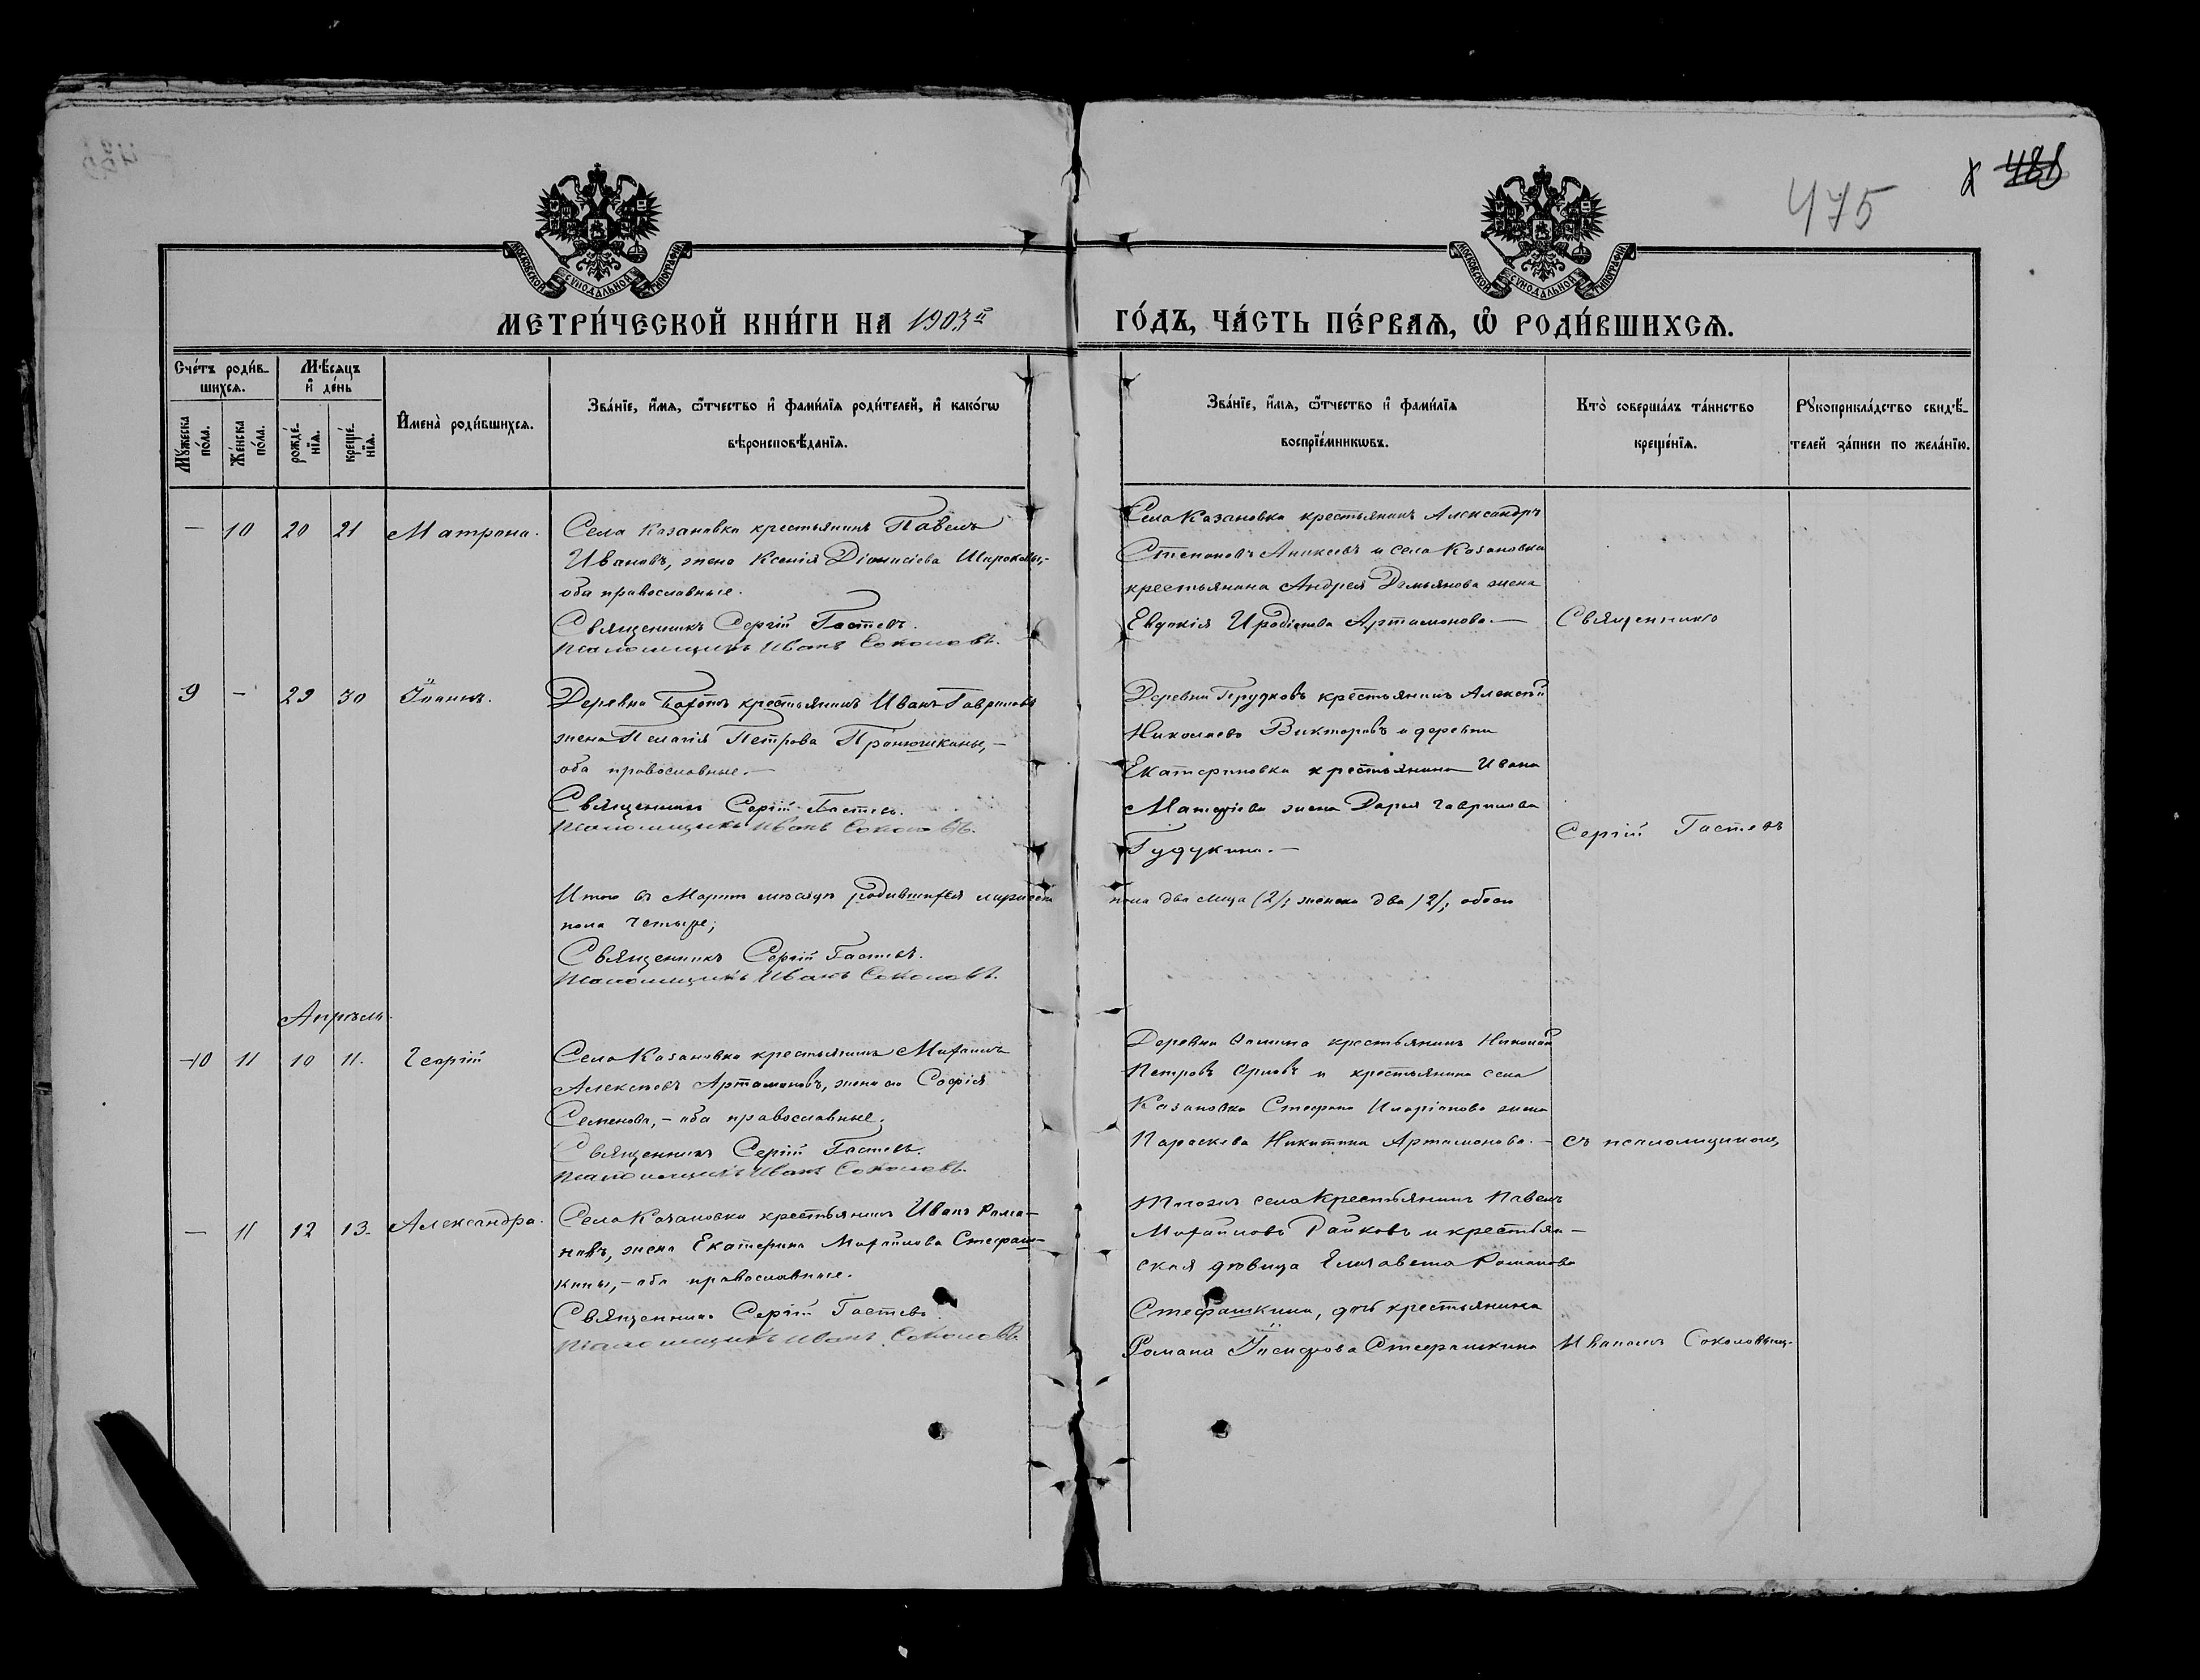 475
МОСКОВСКОЙ СѴНОДАЛЬНОЙ ТИПОГРАФІИ
МОСКОВСКОЙ СѴНОДАЛЬНОЙ ТИПОГРАФІИ
МЕТРИ́ЧЕСКОЙ КНИ́ГИ НА 1903й ГО́ДЪ, ЧА́СТЬ ПЕ́РВАѦ, Ѡ҆ РОДИ́ВШИХСѦ.
Сче́тъ роди́в-
шихсѧ.
Мѣ́сяцъ
и҆ де́нь
Мꙋ́жеска
по́ла.
Же́нска
по́ла.
рожде́-
нїѧ.
креще́-
нїѧ.
И҆мена̀ роди́вшихсѧ.
Зва́нїе, и҆́мѧ, ѻ҆́тчество и҆ фами́лїѧ роди́телей, и҆ како́гѡ
вѣроисповѣ́данїѧ.
Зва́нїе, и҆́мѧ, ѻ҆́тчество и҆ фами́лїѧ
воспрїе́мникѡвъ.
Кто̀ соверша́лъ та́инство
креще́нїѧ.
Рꙋкоприкла́дство свидѣ́-
телей за́писи по жела́нїю.
— 10 20 21 Матрона.
Села Казановки крестьянинъ Павелъ
Ивановъ, жена Ксенія Діонисіева Широковы,-
оба православные.
Священникъ Сергій Гастевъ.
Псаломщикъ Иванъ Соколовъ.
Села Казановки крестьянинъ Александръ
Степановъ Аникеевъ и села Казановки
крестьянина Андрея Демьянова жена
Евдокія Иродіонова Артамонова.—
Священникъ
9 — 29 30 Іоаннъ.
Деревни крестьянинъ Иванъ Гавриловъ
жена Пелагія Петрова Пронюшкины,—
оба православные.—
Священникъ Сергій Гастевъ.
Псаломщикъ Иванъ Соколовъ.
Деревни крестьянинъ Алексѣй
Николаевъ Викторовъ и деревни
Екатериновки крестьянина Ивана
жена Дарья Гаврилова
Гудукина.—
Сергій Гастевъ
Итого въ Мартѣ мѣсяцѣ родившихся мужеска пола два лица (2/; женска два /2/; обоего
пола четыре;
Священникъ Сергій Гастевъ.
Псаломщикъ Иванъ Соколовъ.
Апрѣль.
10 11 10 11. Георгій
Села Казановки крестьянинъ Михаилъ
Алексѣевъ Артамоновъ, жена его Софія
Семенова,— оба православные.
Священникъ Сергій Гастевъ.
Псаломщикъ Иванъ Соколовъ.
Деревни крестьянинъ Николай
Петровъ Орловъ и крестьянина села
Казановки Стефана Иларіонова жена
Параскева Никитина Артамонова.—
съ псаломщикомъ
— 11 12 13. Александра.
Села Казановки крестьянинъ Иванъ Рома-
новъ, жена Екатерина Михайлова Стефаш-
кины,— оба православные.
Священникъ Сергій Гастевъ.
Псаломщикъ Иванъ Соколовъ.
Тогоже села крестьянинъ Павелъ
Михайловъ Райковъ и крестьян-
ская дѣвица Елизавета Романова
Стефашкина, дочь крестьянина
Романа Іосифова Стефашкина
Иваномъ Соколовымъ.